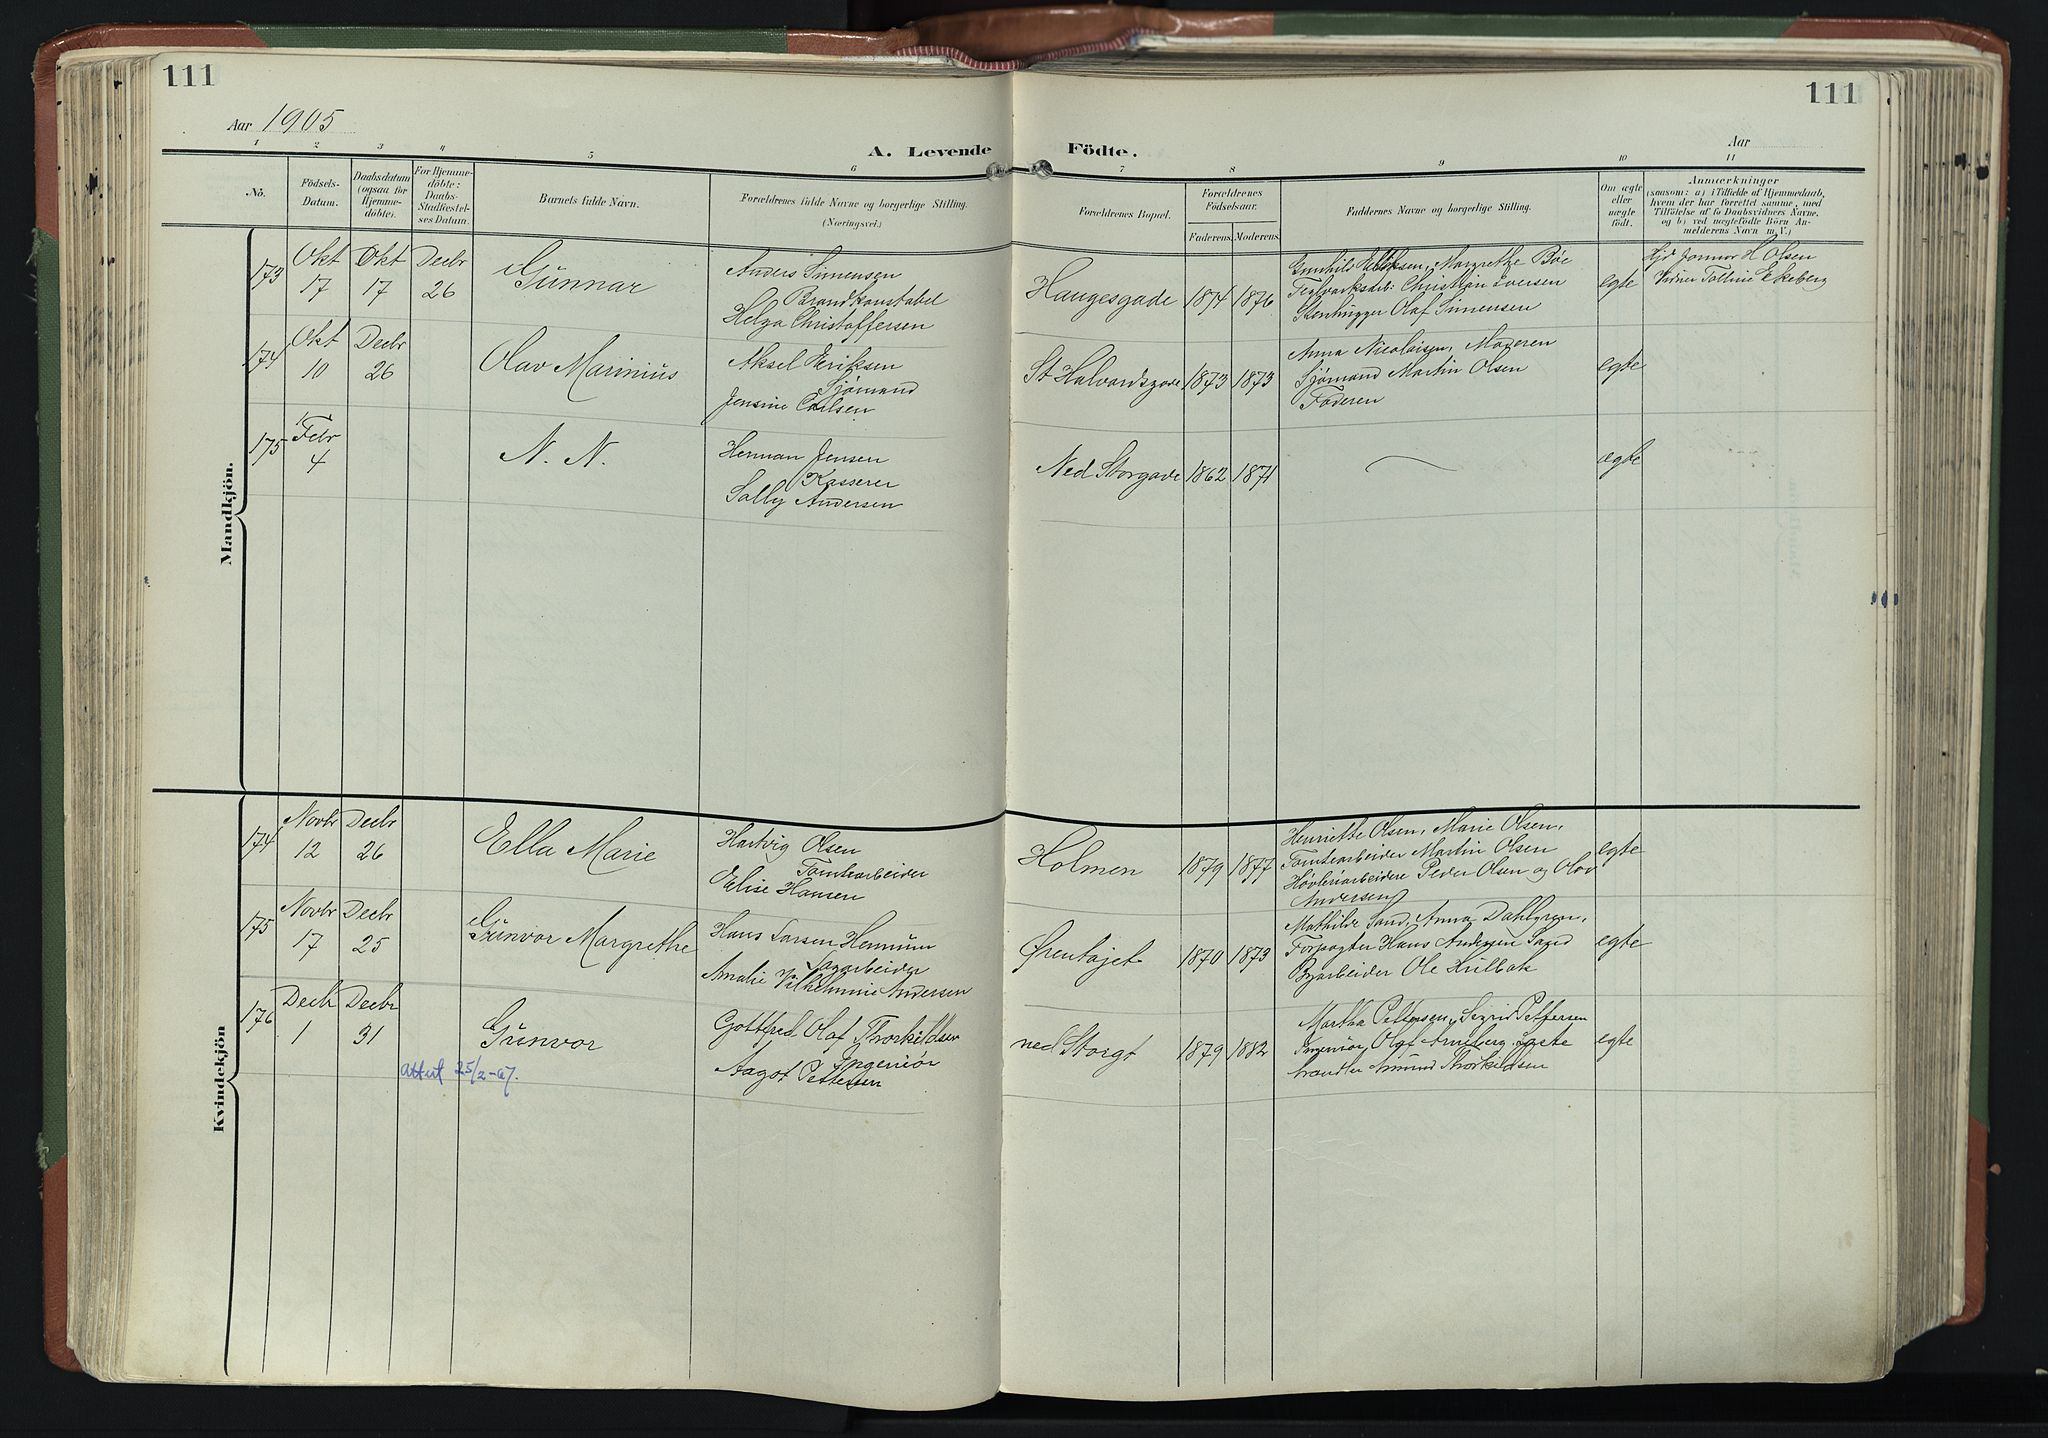 111
111
Aar 1905
Aar
A. Levende Födte.
1 2 3 4 5 6 7 8 9 10 11
No.
Födsels-
Datum.
Daabsdatum
(ogsaa for
Hjemme-
döbte).
For Hjemme-
döbte:
Daabs-
Stadfæstel-
ses Datum.
Barnets fulde Navn.
Forældrenes fulde Navne og borgerlige Stilling.
(Næringsvei.)
Forældrenes Bopæl.
Forældrenes
Födselsaar.
Faderens. Moderens.
Faddernes Navne og borgerlige Stilling.
Om ægte
eller
uægte
födt.
Anmærkninger
(saasom: a) i Tilfælde af Hjemmedaab,
hvem der har forrettet samme, med
Tilföielse af to Daabsvidners Navne,
og b) ved uægtefödte Börn An-
melderens Navn m. V.)
Mandkjön.
173
Okt
17
Okt
17
Decbr
26
Gunnar
Anders Simensen
Brandkonstabel
Helga Christoffersen
Haugesgade
1874
1876
Gunhild Eriksen, Margrethe Böe
Teglverksarb: Christian Iversen
Stenhugger Olaf Simensen
egte
Hjd Jormor H Olsen
Vidner Tolline Ekeberg
174
Okt
10
Decbr
26
Olav Marinius
Aksel Eriksen
Sjømand
Jensine Carlsen
St Halvardsgade
1873
1873
Anna Nicolaisen, Moderen
Sjømand Martin Olsen
Faderen
egte
175
Febr
4
N. N.
Herman Jensen
Kasserer
Sally Andersen
Ned Storgade
1862
1871
ægte
Kvindekjön
174
Novbr
12
Decbr
26
Ella Marie
Hartvig Olsen
Tomtearbeider
Elise Hansen
Holmen
1879
1877
Henriette Olsen, Marie Olsen,
Tomtearbeider Martin Olsen
Høvleriarbeidere Peder Olsen og Olav
Andersen
egte
175
Novbr
17
Decbr
25
Gunvor Margrethe
Hans Larsen Hennum
Sagarbeider
Amalie Vilhelmine Andersen
Ørentøjet
1870
1873
Mathilde Sand, Anna Dahlgren,
Forpagter Hans Andersen Sand
Byarbeider Ole Hulbak
egte
176
Decbr
1
Decbr
31
Gunvor
Gottfred Olaf Thorkildsen
Ingeniør
Aagot Pettersen
ned Storgt
1879
1882
Martha Pettersen, Sigrid Pettersen
Ingeniør Olaf Arneberg,
handler Amund Thorkildsen
egte
attest 25/2-67.